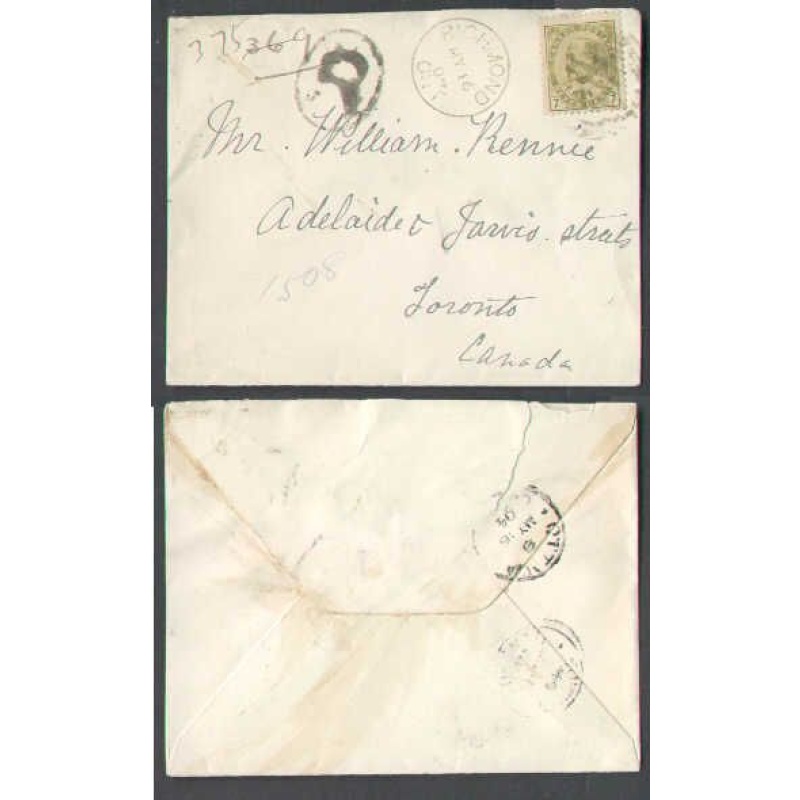 375369
R
RICHMOND
MY 16
04
ONT
7 7
Mr. William. Rennie
Adelaide & Jarvis. streets
Toronto
Canada
1508
MY 16
04